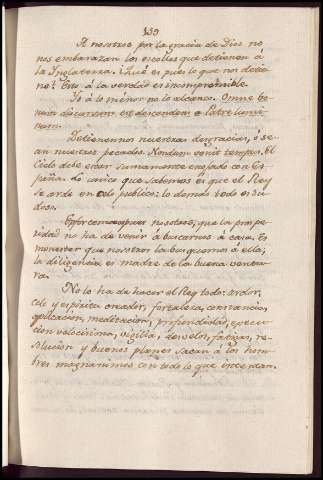 139
A nosotros por la gracia de Dios no
nos embarazan los escollos que detienen á
la Inglaterra. ¿Qué es pues lo que nos detie-
ne? Esto á la verdad es incomprensible.
Yo á lo menor no lo alcanzo. Omne
est descendens a Patre lumi
num.
Detienennos nuestras desgracias, ó se-
an nuestros pecados. Nondum venit tempus. El
Cielo debe estar sumamente enojado con Es-
paña. Lo unico que sabemos es que el Rey
se arde en celo publico: lo demas todo es su-
dores.
nosotros, que la prospe-
ridad no ha de venir á buscarnos á casa. Es
menester que nosotros la busquemos á ella;
la diligencia es madre de la buena ventu-
ra.
No lo ha de hacer el Rey todo: ardor,
celo y espiritu creador, fortaleza, constancia,
aplicacion, meditacion, profundidad, execu-
cion velocisima, vigilia, desvelos, fatigas, re-
solucion y buenos planes sacan á los hom-
bres magnanimos con todo lo que intentan.